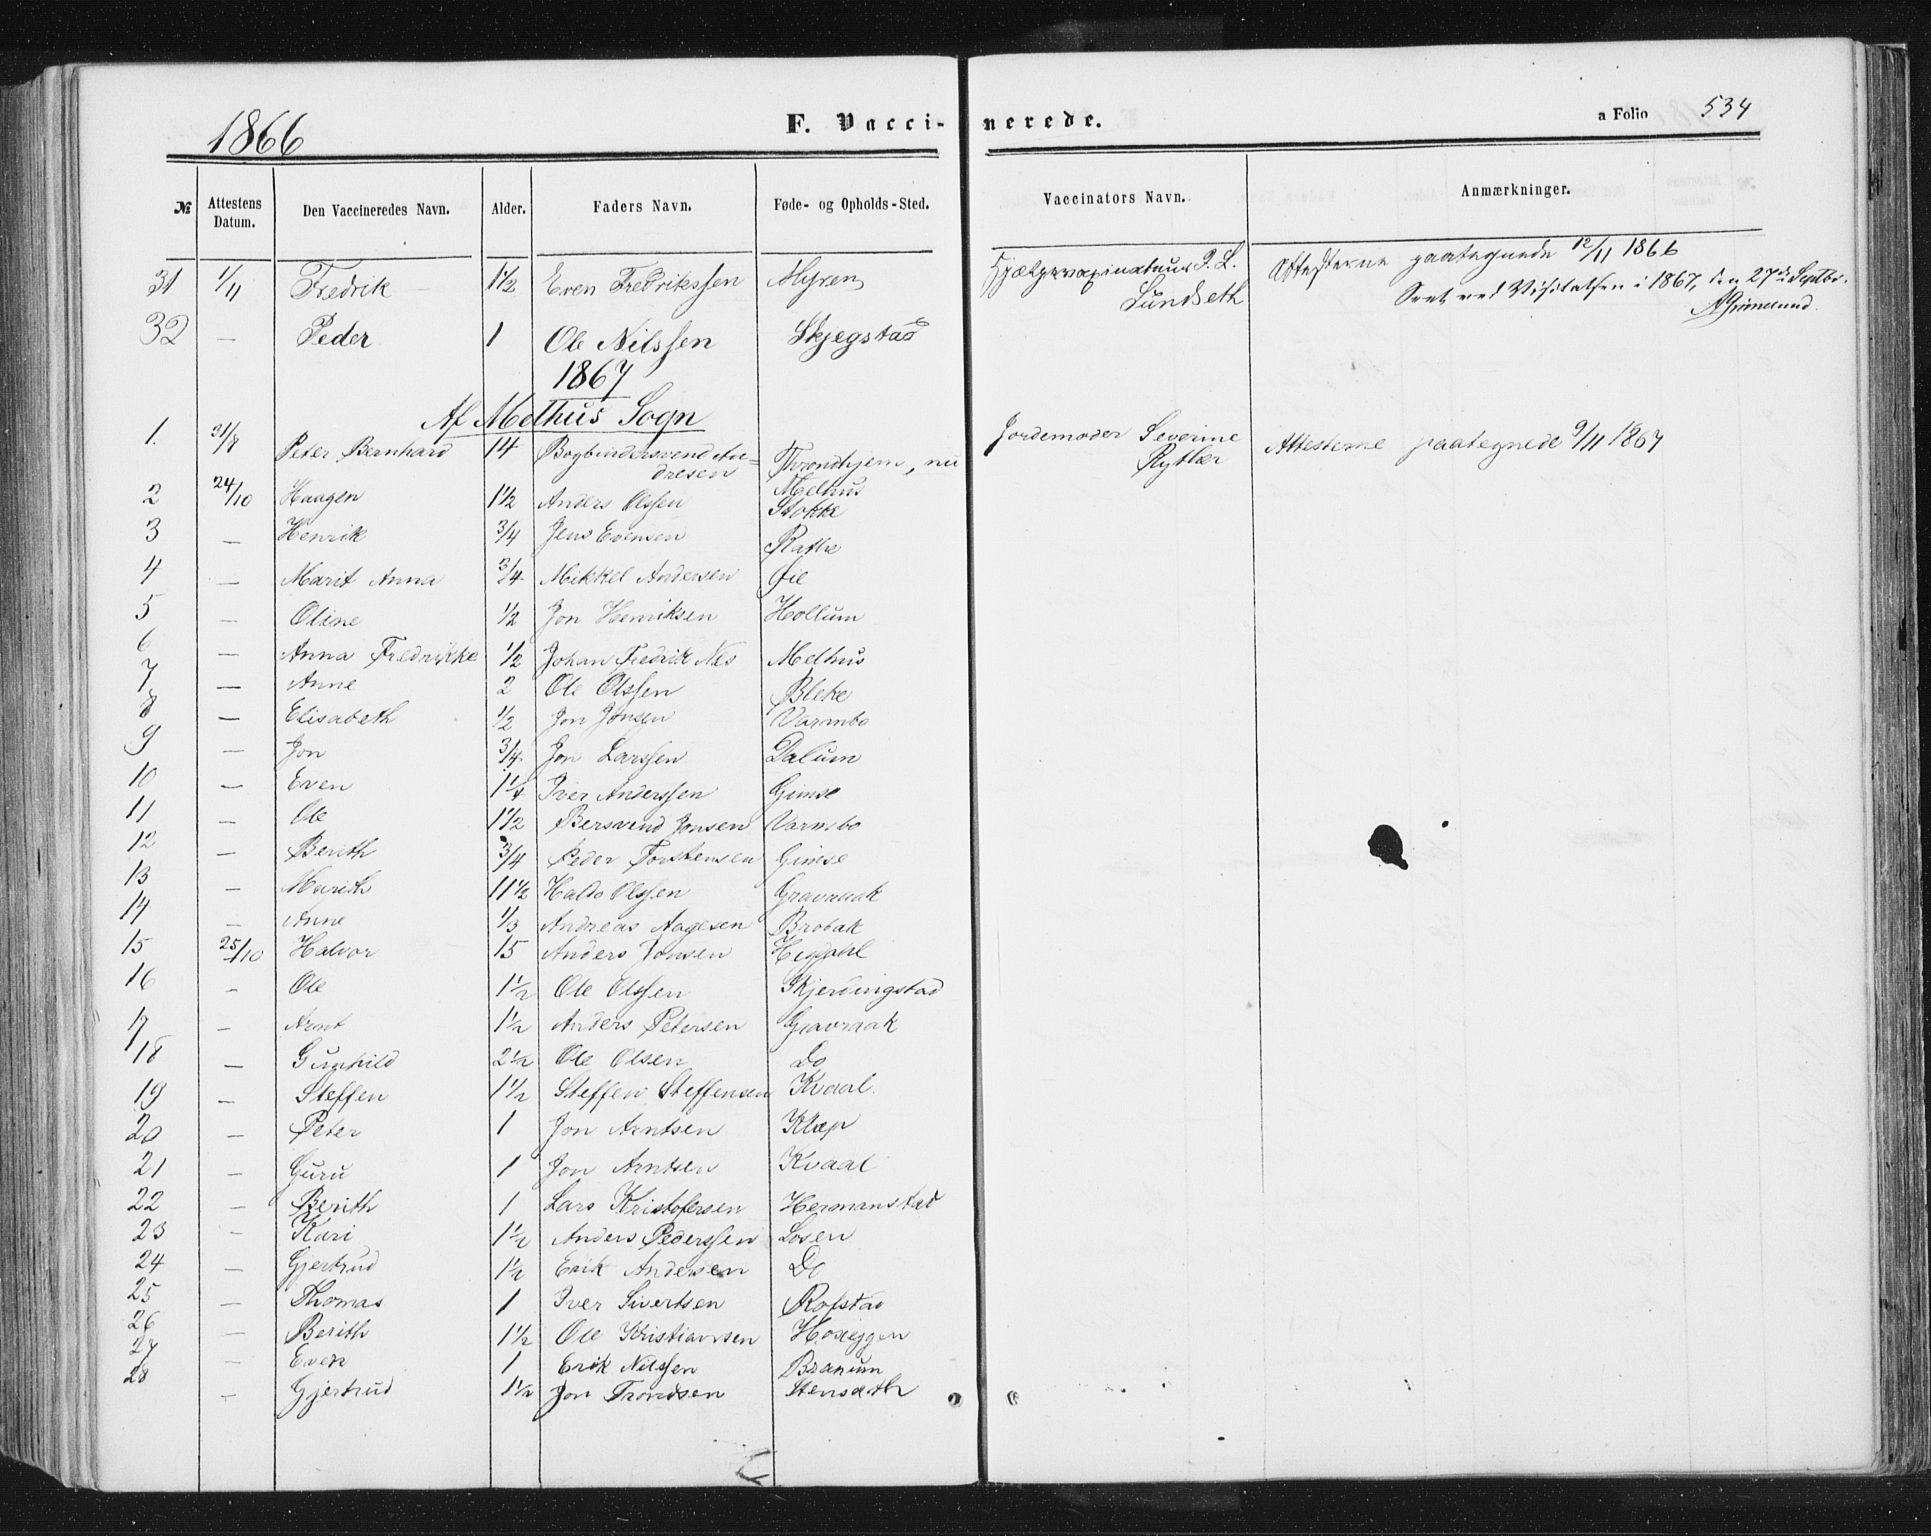 1866 F. Vacci- nerede. a Folio 534
№ Attestens Datum. Den Vaccineredes Navn. Alder. Faders Navn. Føde- og Opholds-Sted. Vaccinators Navn. Anmærkninger.
31 1/11 Fredrik 1½ Even Fredrikssen Myren Hjælpevaxinateur P. L. Lundseth Attesterne paategnede 12/11 1866
Seet ved Visitatsen i 1867, den 27de Septbr.
AGrimelund
32 — Peder 1 Ole Nilssen Skjegstad
1867
Af Melhus Sogn
1. 31/8 Peter Bernhard 14 Bogbindersvend Andresen Throndhjem, nu Melhus Jordemoder Severine Ryther Attesterne paategnede 9/11 1867
2 24/10 Haagen 1½ Anders Olssen Stokke
3 — Henrik 3/4 Jens Evensen Rathe
4 — Marit Anna 3/4 Mikkel Andersen Øie
5 — Oline ½ Jon Henriksen Hollum
6 — Anna Fredrikke ½ Johan Fredrik Nes Melhus
7 — Anne 2 Ole Olssen Bleke
8 — Elisabeth ½ Jon Jonsen Varmbo
9 — Jon 3/4 Jon Larssen Dalum
10 — Even 1¼ Iver Anderssen Gimse
11 — Ole 1½ Bersvend Jonsen Varmbo
12 — Berith 3/4 Peder Torstensen Gimse
13 — Marith 11½ Haldo Olssen Gravraak
14 — Anne 1/3 Andreas Aagesen Brobak
15 25/10 Halvor 15 Anders Jonsen Hegdahl
16 — Ole 1½ Ole Olssen Skjerdingstad
17 — Arnt 1½ Anders Petersen Gravraak
18 — Gunhild 2½ Ole Olsen Do
19 — Steffen 1½ Steffen Steffensen Kvaal
20 — Peter 1 Jon Arntsen Klæp
21 — Guru 1 Jon Arntsen Kvaal
22 — Berith 1 Lars Kristofersen Hermanstad
23 — Kari 1½ Anders Pederssen Losen
24 — Gjertrud 1½ Erik Andersen Do
25 — Thomas 1 Iver Sivertsen Rofstad
26 — Berith 1½ Ole Kristiansen Hoseggen
27 — Even 1 Erik Nilssen Branum
28 — Gjertrud 1½ Jon Trondsen Stensæth